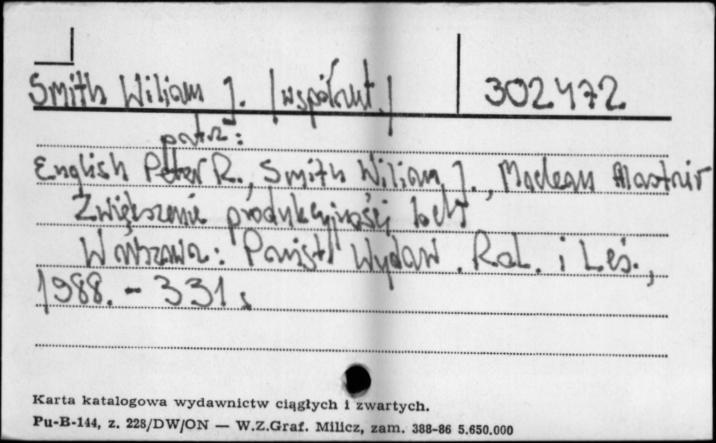 Smith Wiliam J. /współaut./ 302472
patrz:
English Peter R., Smith Wiliam J., Maclean Alastair
Zwiększenie produkcyjności loch
Warszawa: Państ. Wydaw. Rol. i Leś.,
1988. - 331 s
Karta katalogowa wydawnictw ciągłych i zwartych.
Pu-B-144, z. 228/DW/ON — W.Z.Graf. Milicz, zam. 388-86 5.650.000